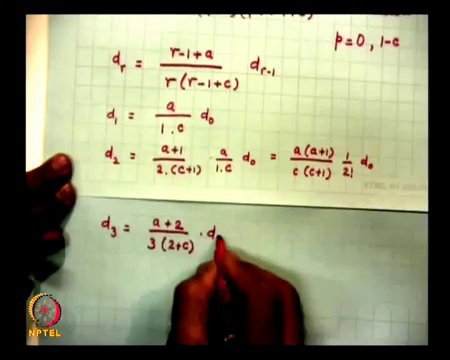 p=0, 1-c
d_r = \frac{r-1+a}{r(r-1+c)} d_{r-1}
d_1 = \frac{a}{1.c} d_0
d_2 = \frac{a+1}{2.(c+1)} \cdot \frac{a}{1.c} d_0 = \frac{a(a+1)}{c(c+1)} \frac{1}{2!} d_0
d_3 = \frac{a+2}{3(2+c)} \cdot d
NPTEL